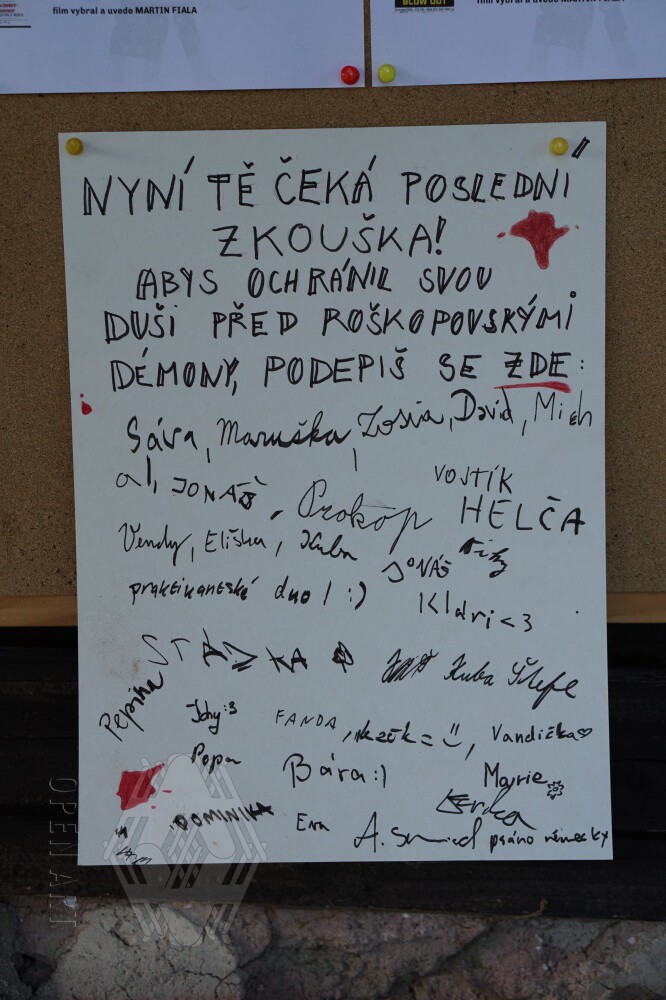 film vybral a uvede MARTIN FIALA
BLOW OUT
film vybral a uvede MARTIN FIALA
NYNÍ TĚ ČEKÁ POSLEDNÍ
ZKOUŠKA!
ABYS OCHRÁNIL SVOU
DUŠI PŘED ROŠKOPOVSKÝMI
DÉMONY, PODEPIŠ SE ZDE:
Sára, Maruška, Zosia, David, Mich
al, JONÁŠ, Prokop
VOJTÍK
HELČA
Vendy, Eliška, Kuba
JONÁŠ
praktikantské duo! :)
Klári <3
STÁZKA
Kuba
Pepina
Johy :3
FANDA,
Vandička
Pepa
Bára :)
Marie
DOMINIKA
Eva
A. psáno německy
OPEN ART